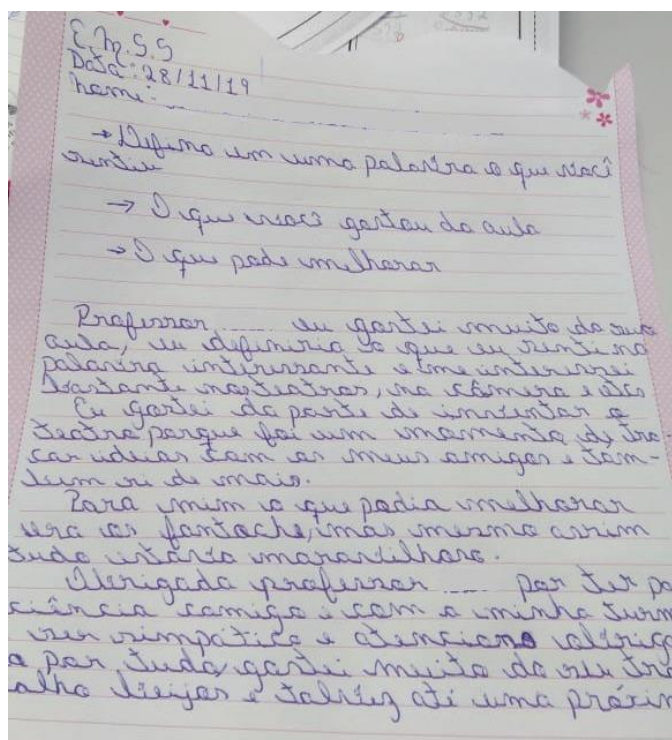 E.M.S.S
Data: 28/11/19
Nome:
→ Defina em uma palavra o que você
sentiu
→ O que você gostou da aula
→ O que pode melhorar
Professor ..... eu gostei muito da sua
aula, eu definiria o que eu senti na
palavra interessante e me interessei
bastante nos teatros, na câmera e etc.
Eu gostei da parte de inventar o
teatro porque foi um momento de tro-
car ideias com os meus amigos e tam-
bem ri de mais.
Para mim o que podia melhorar
era os fantoche, mas mesmo assim
tudo estava maravilhoso.
Obrigada professor ..... por ter pa
ciência comigo e com a minha turm
ser simpático e atencioso obrig
a por tudo, gostei muito do seu tr
alho beijos e talvez até uma próxim